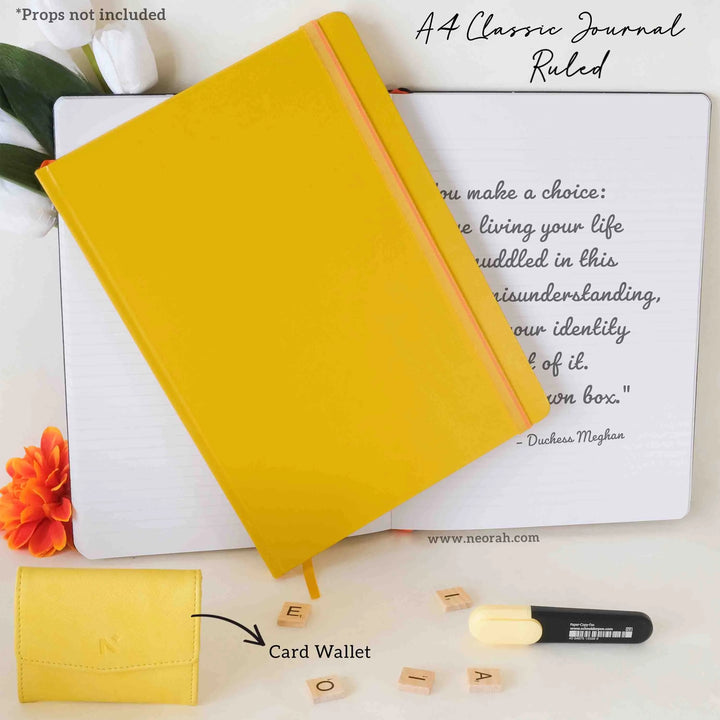 *Props not included
A4 Classic Journal
Ruled
you make a choice:
living your life
in this
misunderstanding,
your identity
of it.
own box."
– Duchess Meghan
www.neorah.com
Card Wallet
N
E
I
O
I
A
Paper Copy Fan